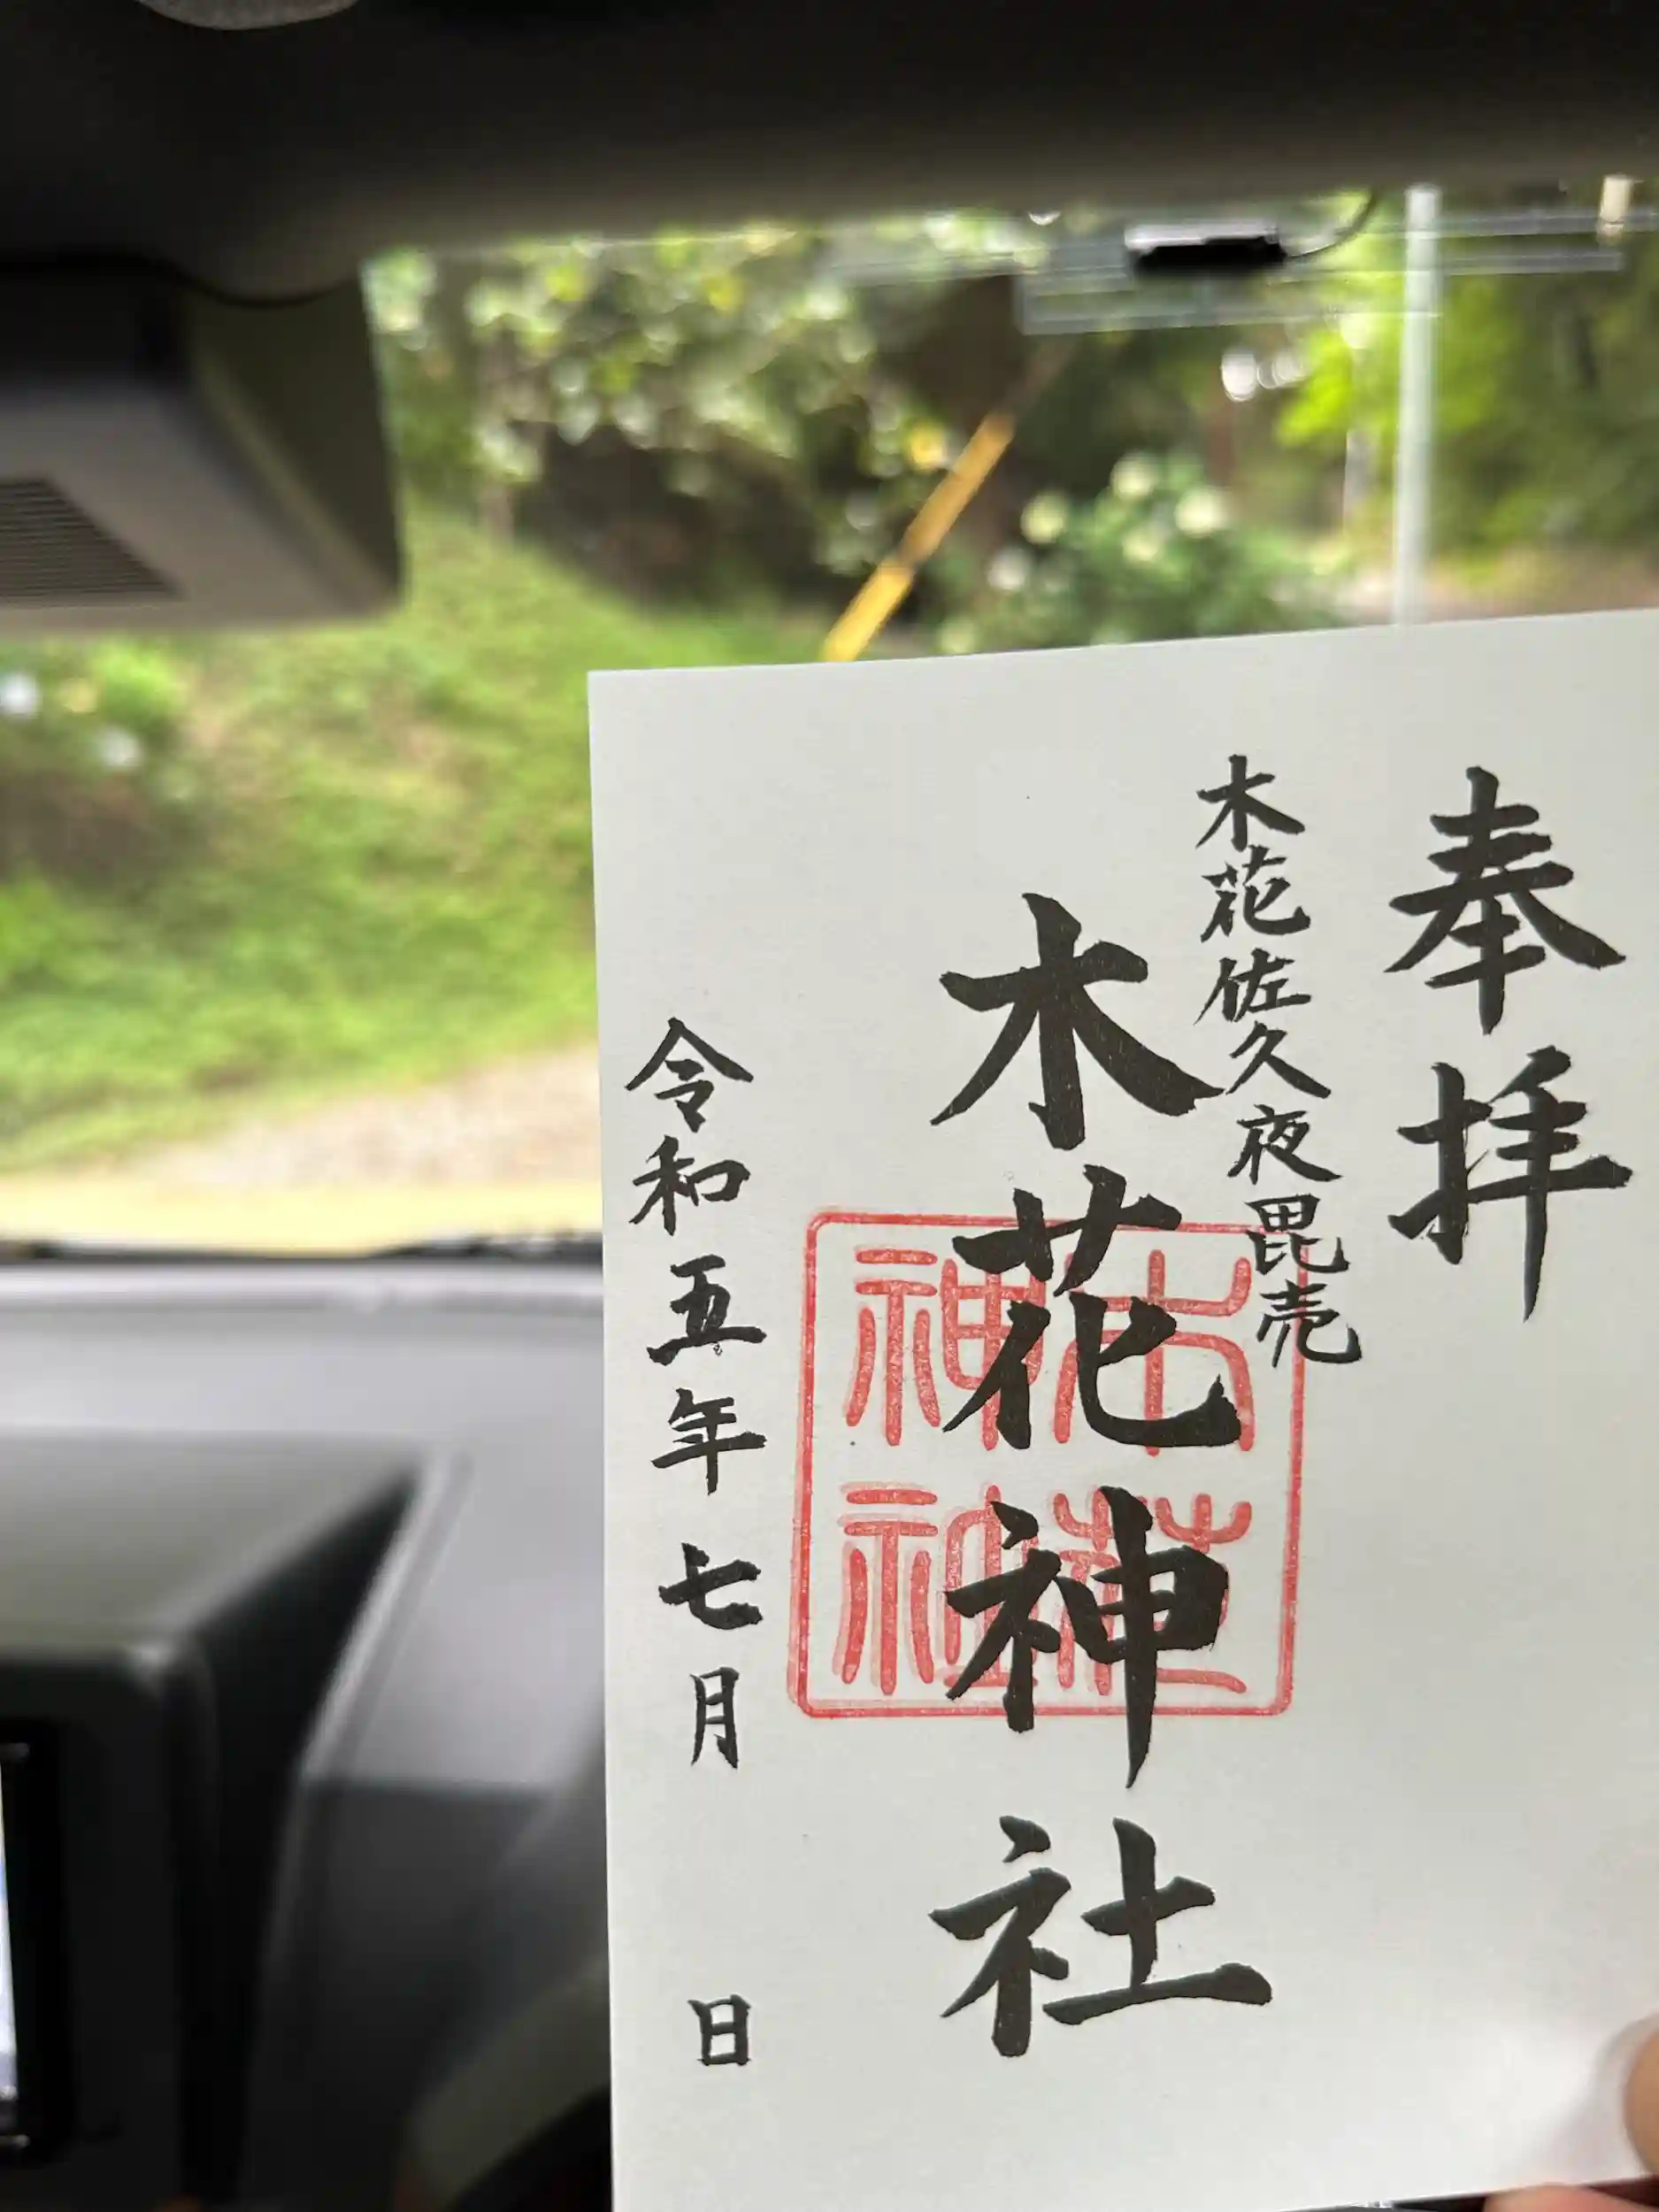 奉拝
木花佐久夜毘売
木花神社
木花
神社
令和五年七月 日